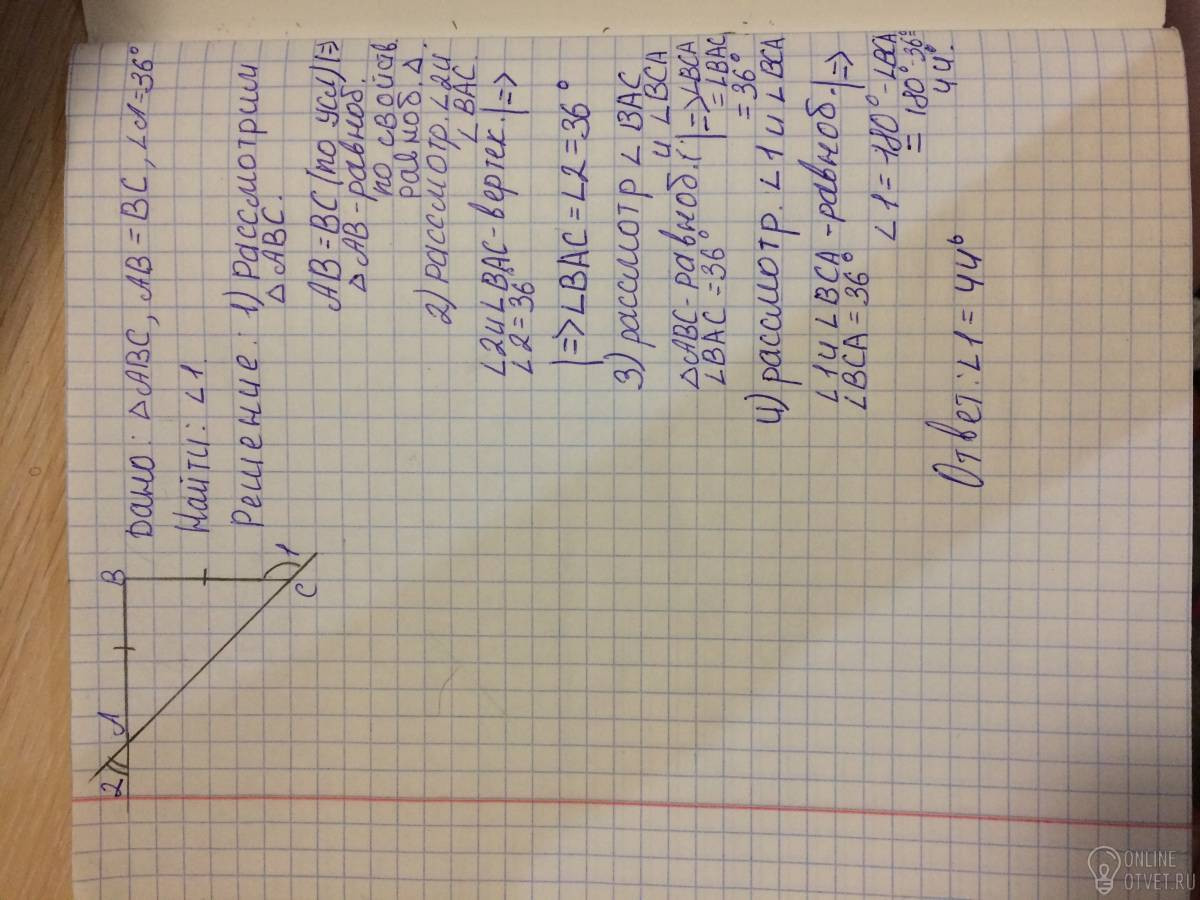 Дано: △ABC, AB = BC, ∠A = 36°
Найти: ∠1
Решение: 1) Рассмотрим
△ABC.
AB = BC (по усл) |=>
△AB - равноб.
по свойств.
равноб. △.
2) рассмотр. ∠2 и
∠BAC.
∠2 и ∠BAC - вертек. |=>
∠2 = 36°
|=> ∠BAC = ∠2 = 36°
3) рассмотр ∠BAC
и ∠BCA
△ABC - равноб. |=> ∠BCA
∠BAC = 36° = ∠BAC
= 36°
4) рассмотр. ∠1 и ∠BCA
∠1 и ∠BCA - равноб. |=>
∠BCA = 36°
∠1 = 180° - ∠BCA
= 180° - 36° =
44°.
Ответ: ∠1 = 44°
2
A
B
C
1
ONLINE
OTVET.RU